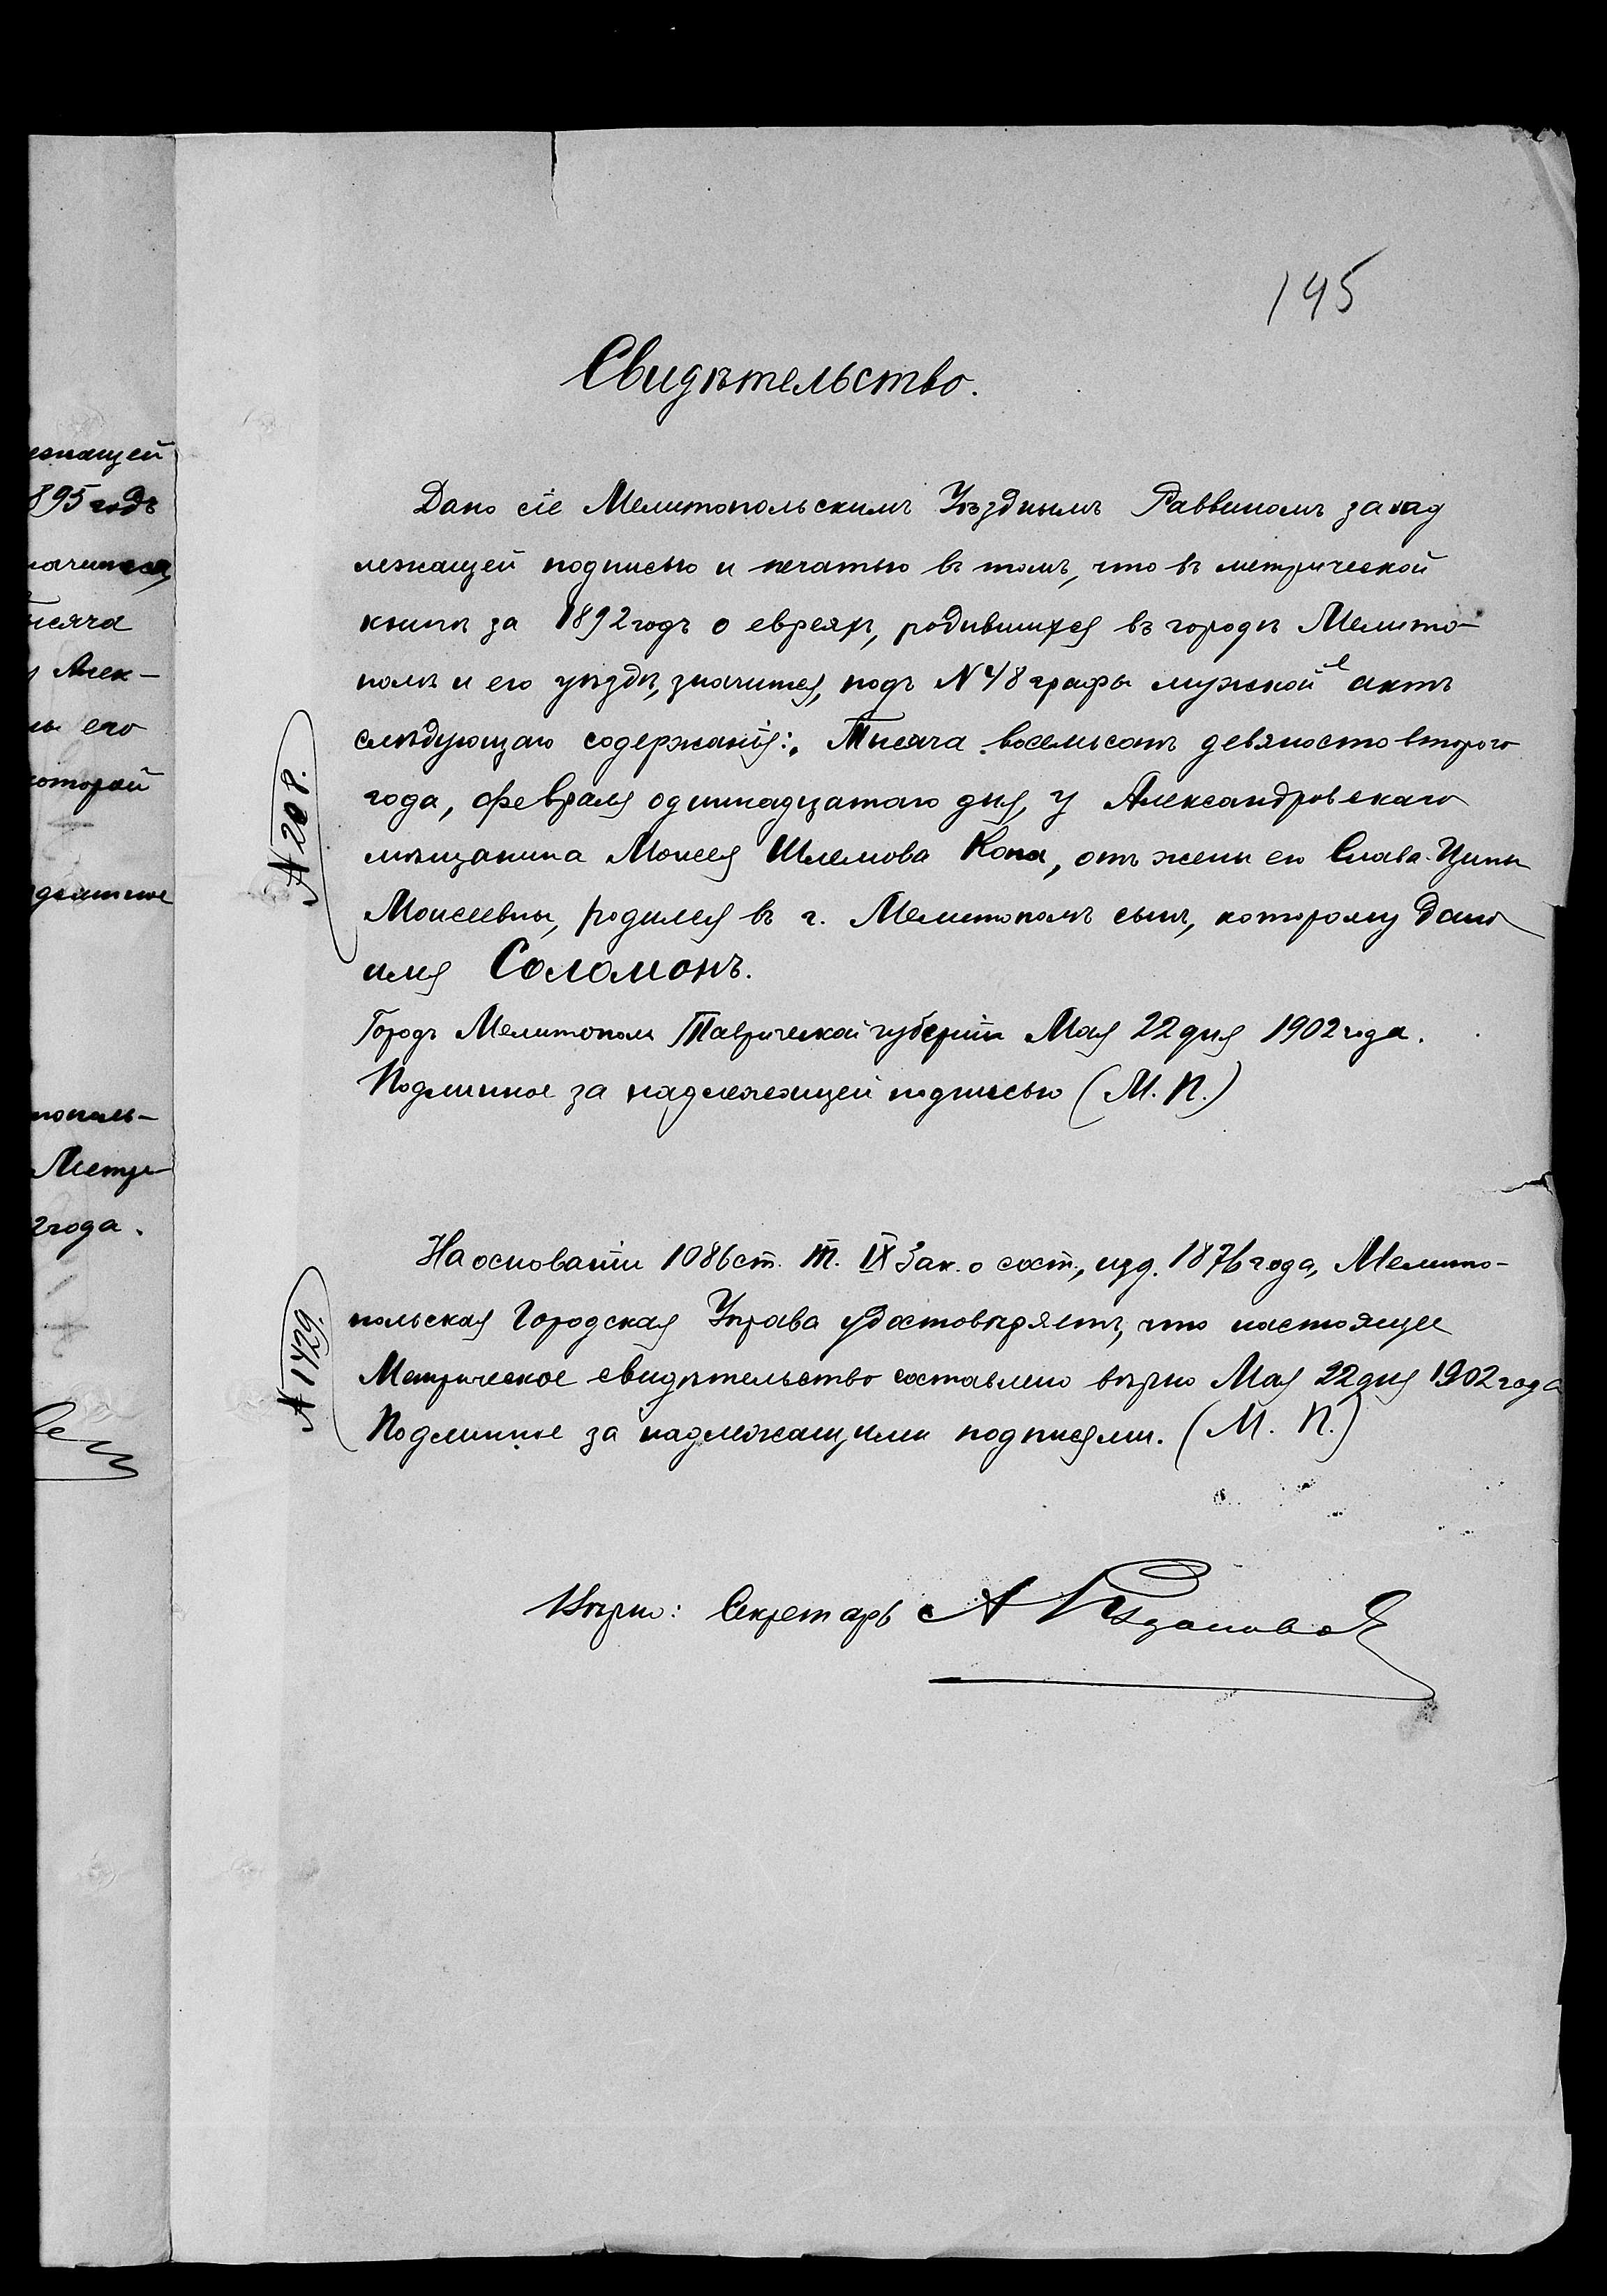 195
Свидѣтельство.
Дано сіе Мелитопольскимъ Уѣзднымъ Раввиномъ за над
лежащей подписью и печатью въ томъ, что въ метрической
книгѣ за 1892 годъ о евреяхъ, родившихся въ городѣ Мелито-
полѣ и его уѣздѣ, значится, подъ № 48 графы мужской актъ
слѣдующаго содержанія: Тысяча восемьсотъ девяносто второго
года, февраля одиннадцатаго дня, у Александровскаго
мѣщанина Моисея Шлемова Кона, отъ жены его Слава-Ципы
Моисеевны, родился въ г. Мелитополѣ сынъ, которому дано
имя Соломонъ.
Городъ Мелитополь Таврической губерніи Мая 22 дня 1902 года.
Подлинное за надлежащей подписью (М. П.)
№ 208.
На основаніи 1086 ст. т. IX Зак. о сост., изд. 1876 года, Мелито-
польская Городская Управа удостовѣряетъ, что настоящее
Метрическое свидѣтельство составлено вѣрно Мая 22 дня 1902 года
Подлинное за надлежащими подписями. (М. П.)
№ 1429.
Вѣрно: Секретарь А
лежащей
895 годъ
значится,
тысяча
Алек-
его
которой
тополь-
Метри-
2 года.